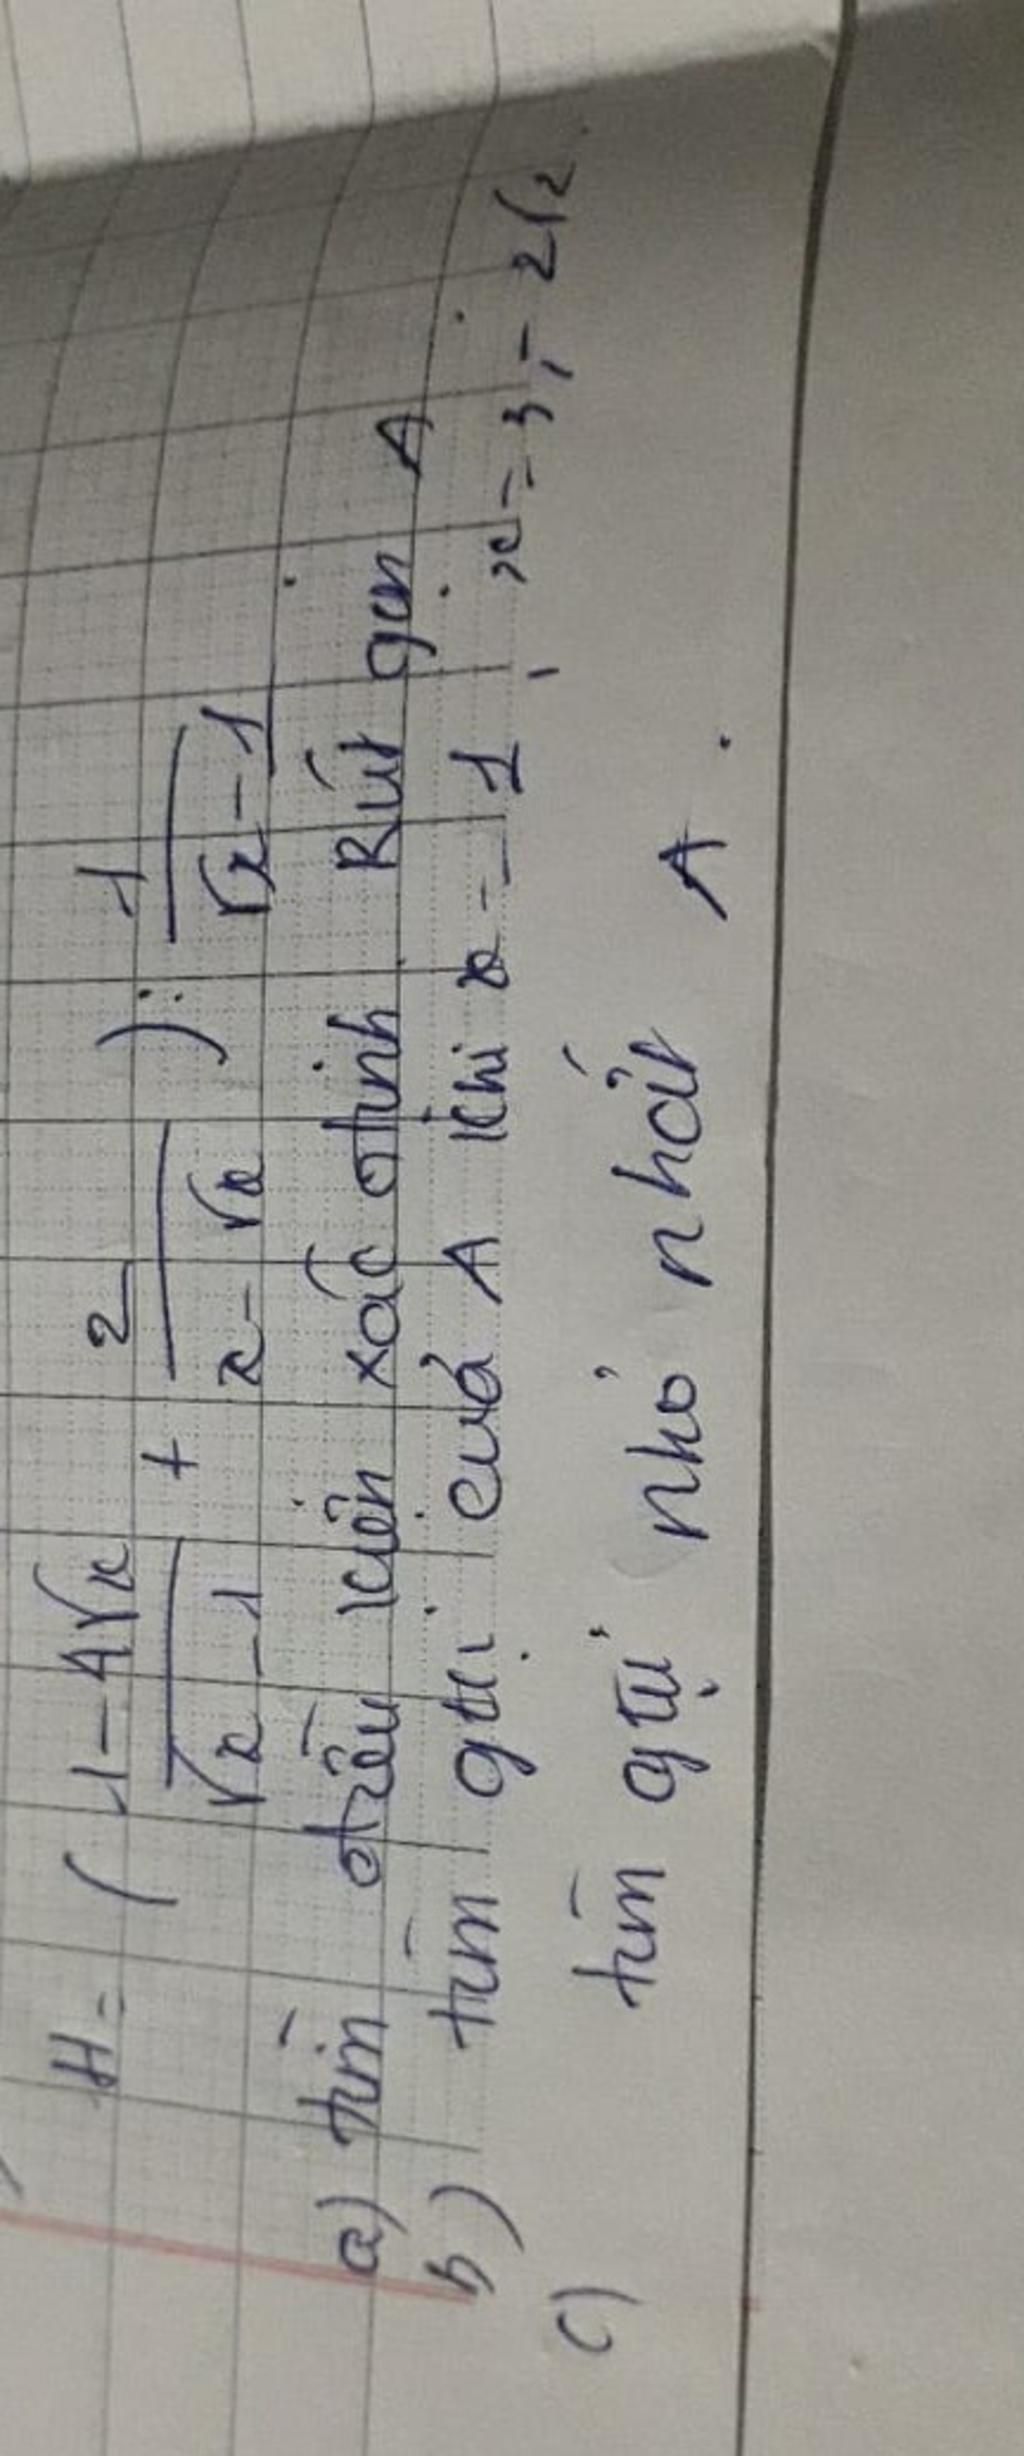 H = ( 1-4√x / √x-1 + 2 / x-√x ) : 1 / √x-1
a) tìm điều kiện xác định. Rút gọn A.
b) tìm gtrị của A khi x = 1, x = 3, - 2√2.
c) tìm gtrị nhỏ nhất A.